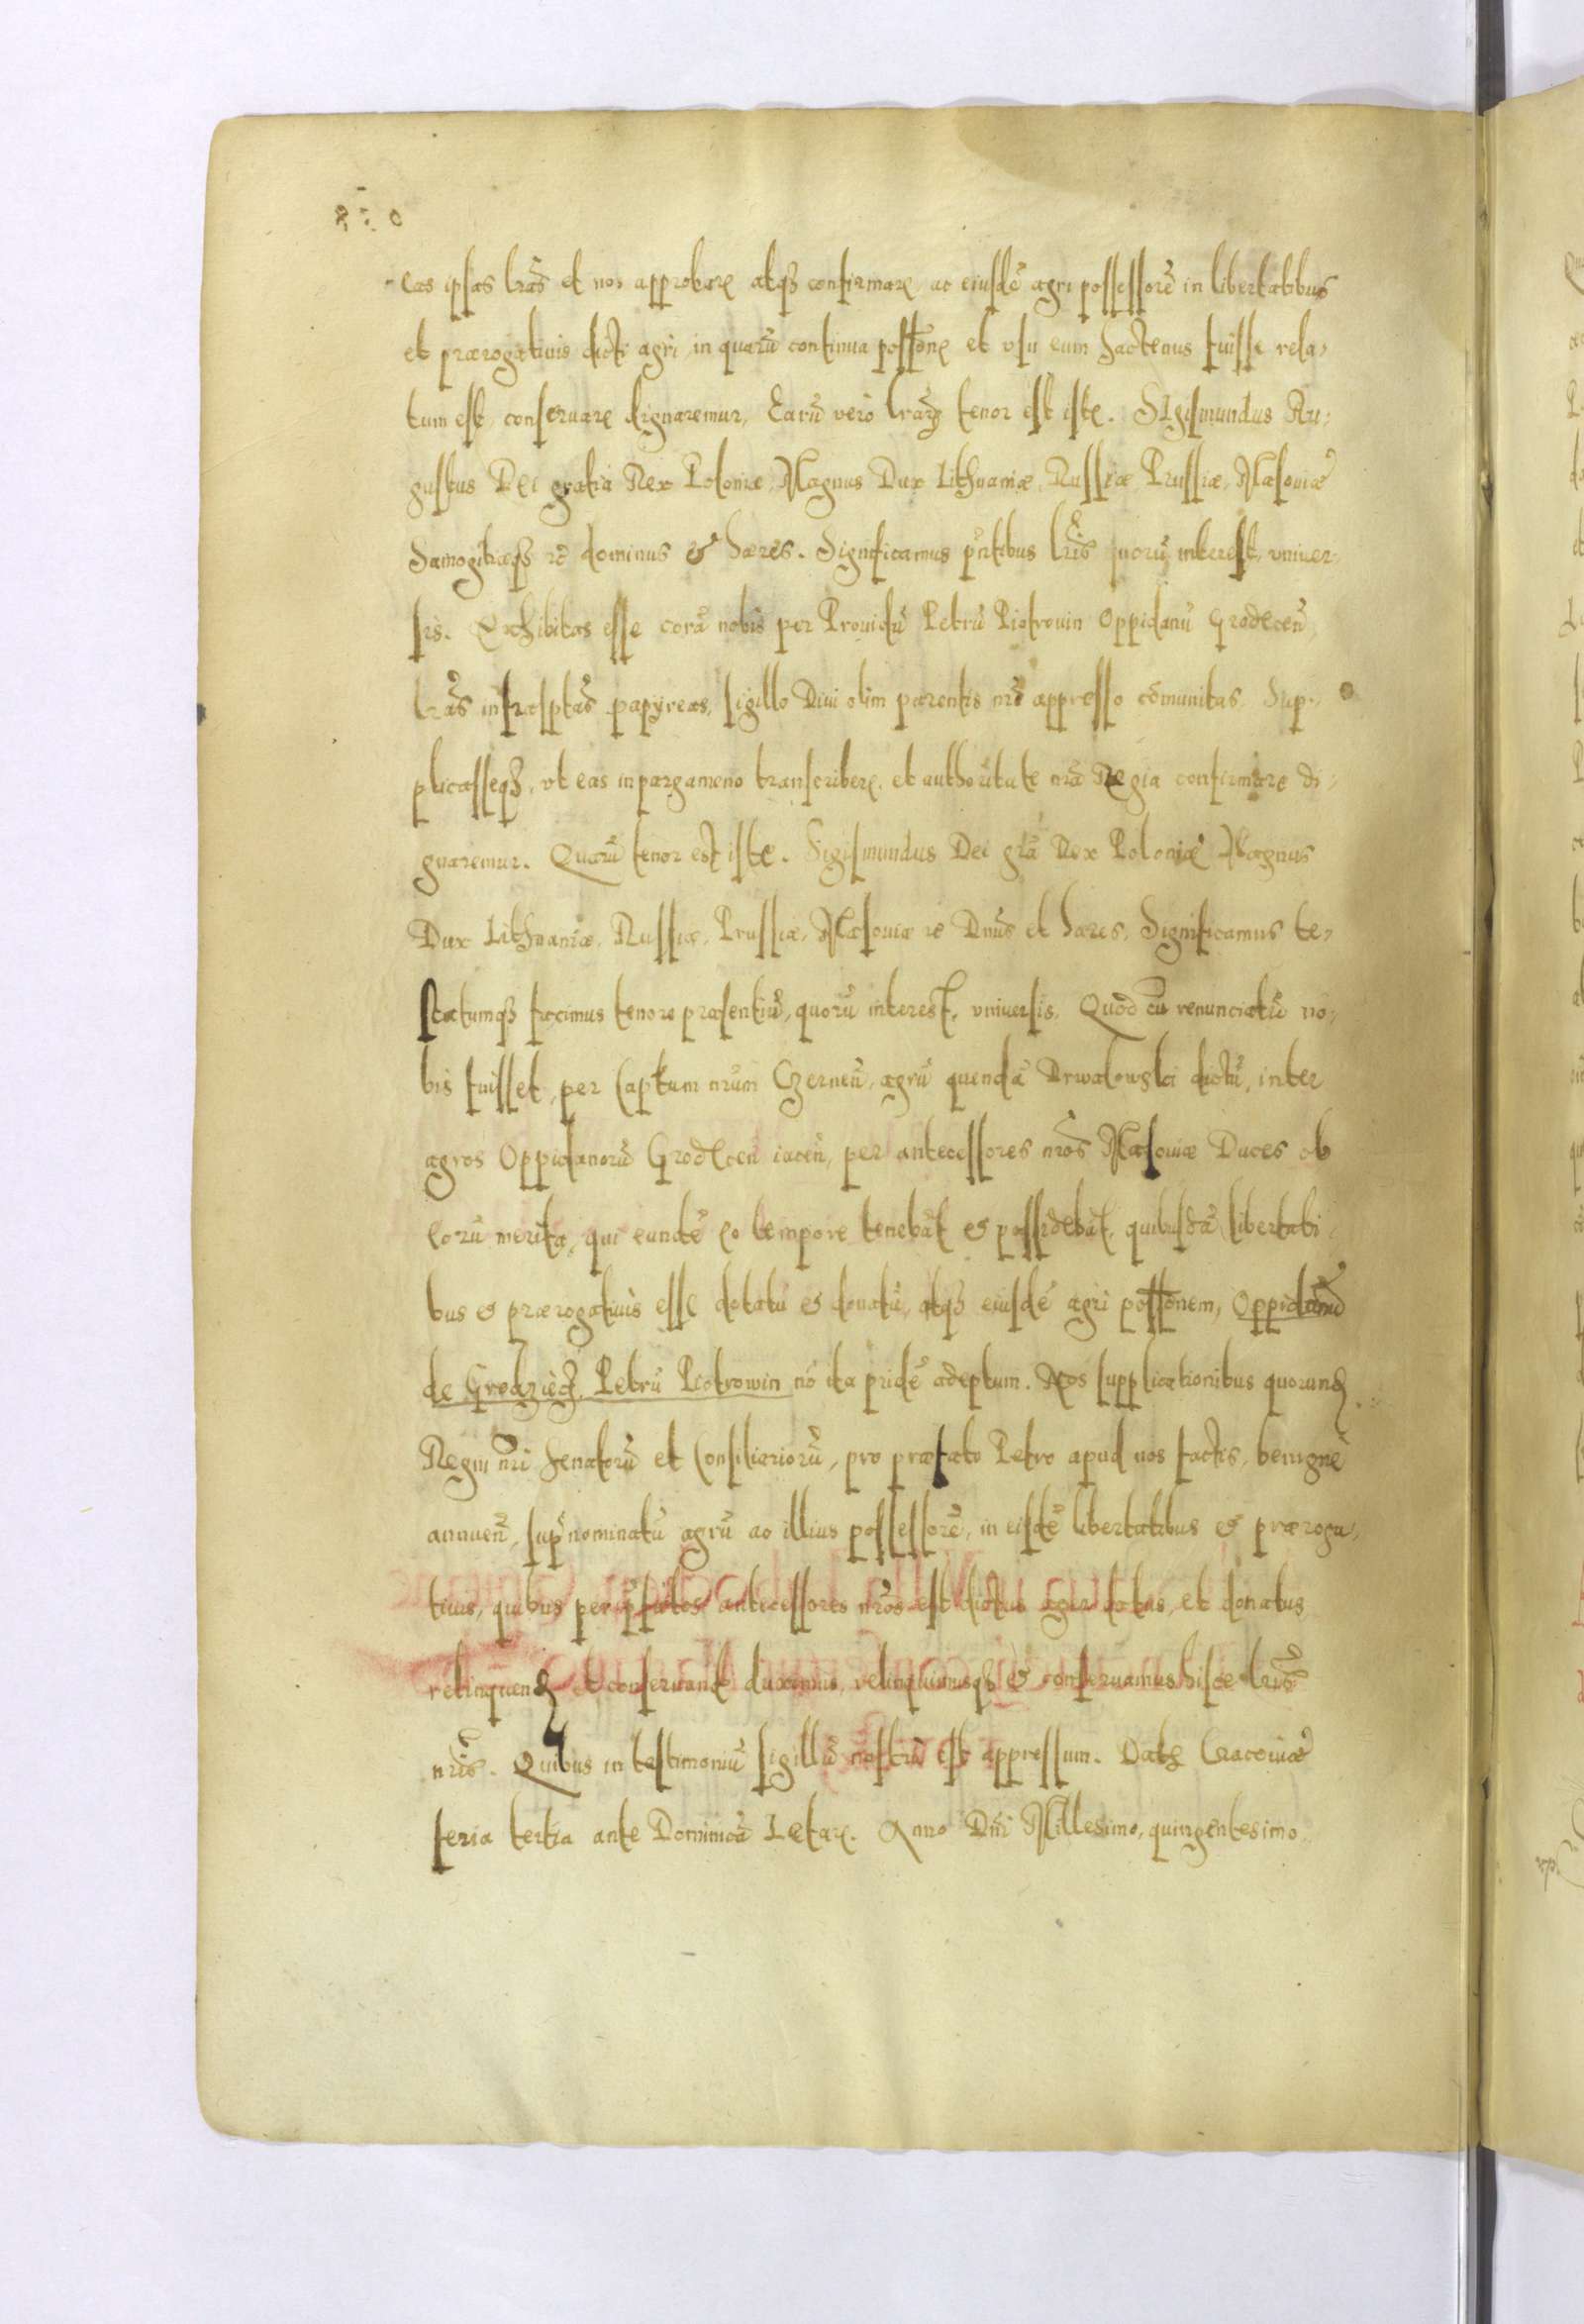 eas ipsas lr̃as et nos approbare atq₃ confirmare, ac eiusdẽ agri possessorẽ in libertatibus
et prærogatiuis dicti agri, in quarũ continua poss̃one et vsu eum hactenus fuisse rela,
tum est, conseruare dignaremur, Earũ verò lr̃arꝫ tenor est iste. SIgismundus Au,
gustus Dei gratia Rex Poloniæ, Magnus Dux Lithuaniæ, Russiæ, Prussiæ, Masouiæ
Samogitiæq₃ ꝛc̃ dominus & hæres. Significamus p̃ntibus lr̃is quorũ interest, vniuer,
sis. Exhibitas esse corã nobis per Prouidũ Petrũ Piotrouin Oppidanũ Grodeceñ
lr̃as infrasp̃tas papyreas, sigillo Diui olim parentis nr̃i appresso cõmunitas. Sup,
plicasseq₃, vt eas in pargameno transcribere, et authoritate nr̃a Regia confirmare di,
gnaremur. Quarũ tenor est iste. Sigismundus Dei gr̃a Rex Poloniæ Magnus
Dux Lithuaniæ, Russiæ, Prussiæ, Masouiæ ꝛc Dñus et hæres, Significamus te,
statumq₃ facimus tenore præsentiũ, quorũ interest, vniuersis. Quòd cũ renunciatũ no,
bis fuisset, per Captum nr̃um Czerneñ, agrũ quendã Drwalowski dictũ, inter
agros Oppidanorũ Grodeceñ iaceñ, per antecessores nr̃os Masouiæ Duces ob
eorũ merita, qui eundẽ eo tempore tenebãt & possidebãt, quibusdã libertati,
bus & prærogatiuis esse dotatũ & donatũ, atq₃ eiusdẽ agri poss̃onem, Oppidanũ
de Grodziecz Petrũ Piotrowin nõ ita pridẽ adeptum. Nos supplicationibus quorund₃
Regni nr̃i Senatorũ et Consiliariorũ, pro præfato Petro apud nos factis, benigne
annueñ, sup̃nominatũ agrũ ac illius possessorẽ, in eisdẽ libertatibus & præroga,
tiuis, quibus per antecessores nr̃os est dictus ager datus, et donatus
relinquend₃ et conseruand duximus, relinquimusq₃ & conseruamus hisce lr̃is
nr̃is. Quibus in testimoniũ sigillũ nostrũ est appressum. Dat₃ Cracouiæ
feria tertia ante Dominicã Letare. Anno Dñi Millesimo, quingentesimo